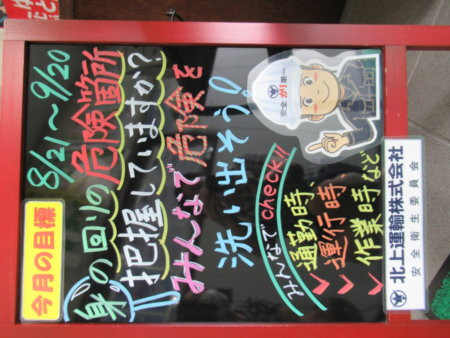 今月の目標
8/21～9/20
身の回りの危険箇所
把握していますか?
みんなで危険を
洗い出そう!
安全が第一
みんなでcheck!!
通勤時
運行時
作業時など
北上運輸株式会社
安全衛生委員会